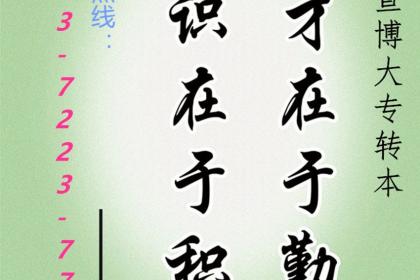 宣博大专转本
才在于勤
识在于积
热线：
3-7223-77